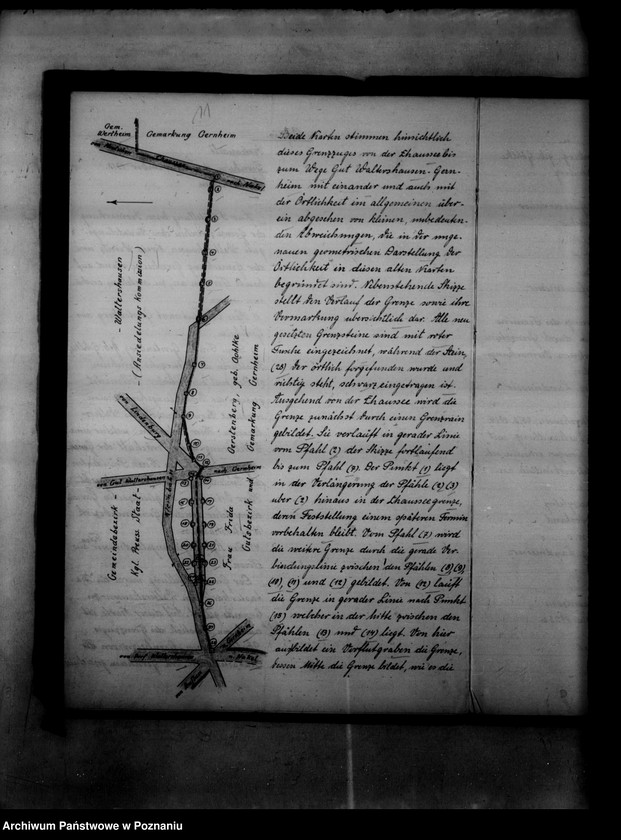 11
Gem.
Wertheim
Gemarkung Gernheim
- Waltershausen
- (Ansiedelungs Kommission)
von Lindenberg
von Gut Waltershausen
nach Gernheim
Gemeindebezirk -
Kgl. Preuss. Staat -
Frau Frida Gerstenberg, geb.
Gutsbezirk und Gemarkung Gernheim
Beide Karten stimmen hinsichtlich
dieses Grenzzuges von der Chaussee bis
zum Wege Gut Waltershausen - Gern-
heim mit einander und auch mit
der Örtlichkeit im allgemeinen über-
ein abgesehen von kleinen, unbedeuten-
den Abweichungen, die in der unge-
nauen geometrischen Darstellung der
Örtlichkeit in diesen alten Karten
begründet sind. Nebenstehende Skizze
stellt den Verlauf der Grenze sowie ihre
Vermarkung übersichtlich dar. Alle neu
gesetzten Grenzsteine sind mit roter
Tusche eingezeichnet, während der Stein,
(25) der örtlich vorgefunden wurde und
richtig steht, schwarz eingetragen ist.
Ausgehend von der Chaussee wird die
Grenze zunächst durch einen Grenzrain
gebildet. Sie verläuft in gerader Linie
vom Pfahl (2) der Skizze fortlaufend
bis zum Pfahl (7). Der Punkt (1) liegt
in der Verlängerung der Pfähle (2) (3)
über (2) hinaus in der Chausseegrenze,
deren Feststellung einem späteren Termine
vorbehalten bleibt. Vom Pfahl (7) wird
die weitere Grenze durch die gerade Ver-
bindungslinie zwischen den Pfählen (8) (9),
(10), (11) und (12) gebildet. Von (12) läuft
die Grenze in gerader Linie nach Punkt
(15) welcher in der Mitte zwischen den
Pfählen (13) und (14) liegt. Von hier
aus bildet ein Vorflutgraben die Grenze,
dessen Mitte die Grenze bildet, wie es die
Archiwum Państwowe w Poznaniu